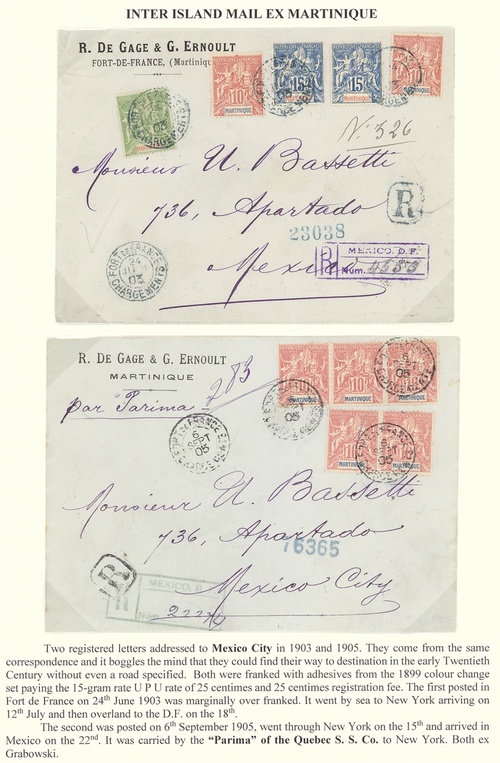 INTER ISLAND MAIL EX MARTINIQUE
R. DE GAGE & G. ERNOULT
FORT-DE-FRANCE, (Martiniqu
10 MARTINIQUE
15 MARTINIQUE
15 MARTINIQUE
10 MARTINIQUE
FORT DE FRANCE
CHARGEMENTS
03
N: 326
Monsieur U. Bassetti
736, Apartado
R
23038
Mexico
MEXICO, D. F.
R Num. 4553
R. DE GAGE & G. ERNOULT
MARTINIQUE
283
par "Parima"
10 MARTINIQUE
FORT DE FRANCE
6 SEPT 05
Monsieur U. Bassetti
736, Apartado
76365
Mexico City
R
MEXICO, D. F.
R Num
Two registered letters addressed to Mexico City in 1903 and 1905. They come from the same
correspondence and it boggles the mind that they could find their way to destination in the early Twentieth
Century without even a road specified. Both were franked with adhesives from the 1899 colour change
set paying the 15-gram rate U P U rate of 25 centimes and 25 centimes registration fee. The first posted in
Fort de France on 24th June 1903 was marginally over franked. It went by sea to New York arriving on
12th July and then overland to the D.F. on the 18th.
The second was posted on 6th September 1905, went through New York on the 15th and arrived in
Mexico on the 22nd. It was carried by the “Parima” of the Quebec S. S. Co. to New York. Both ex
Grabowski.